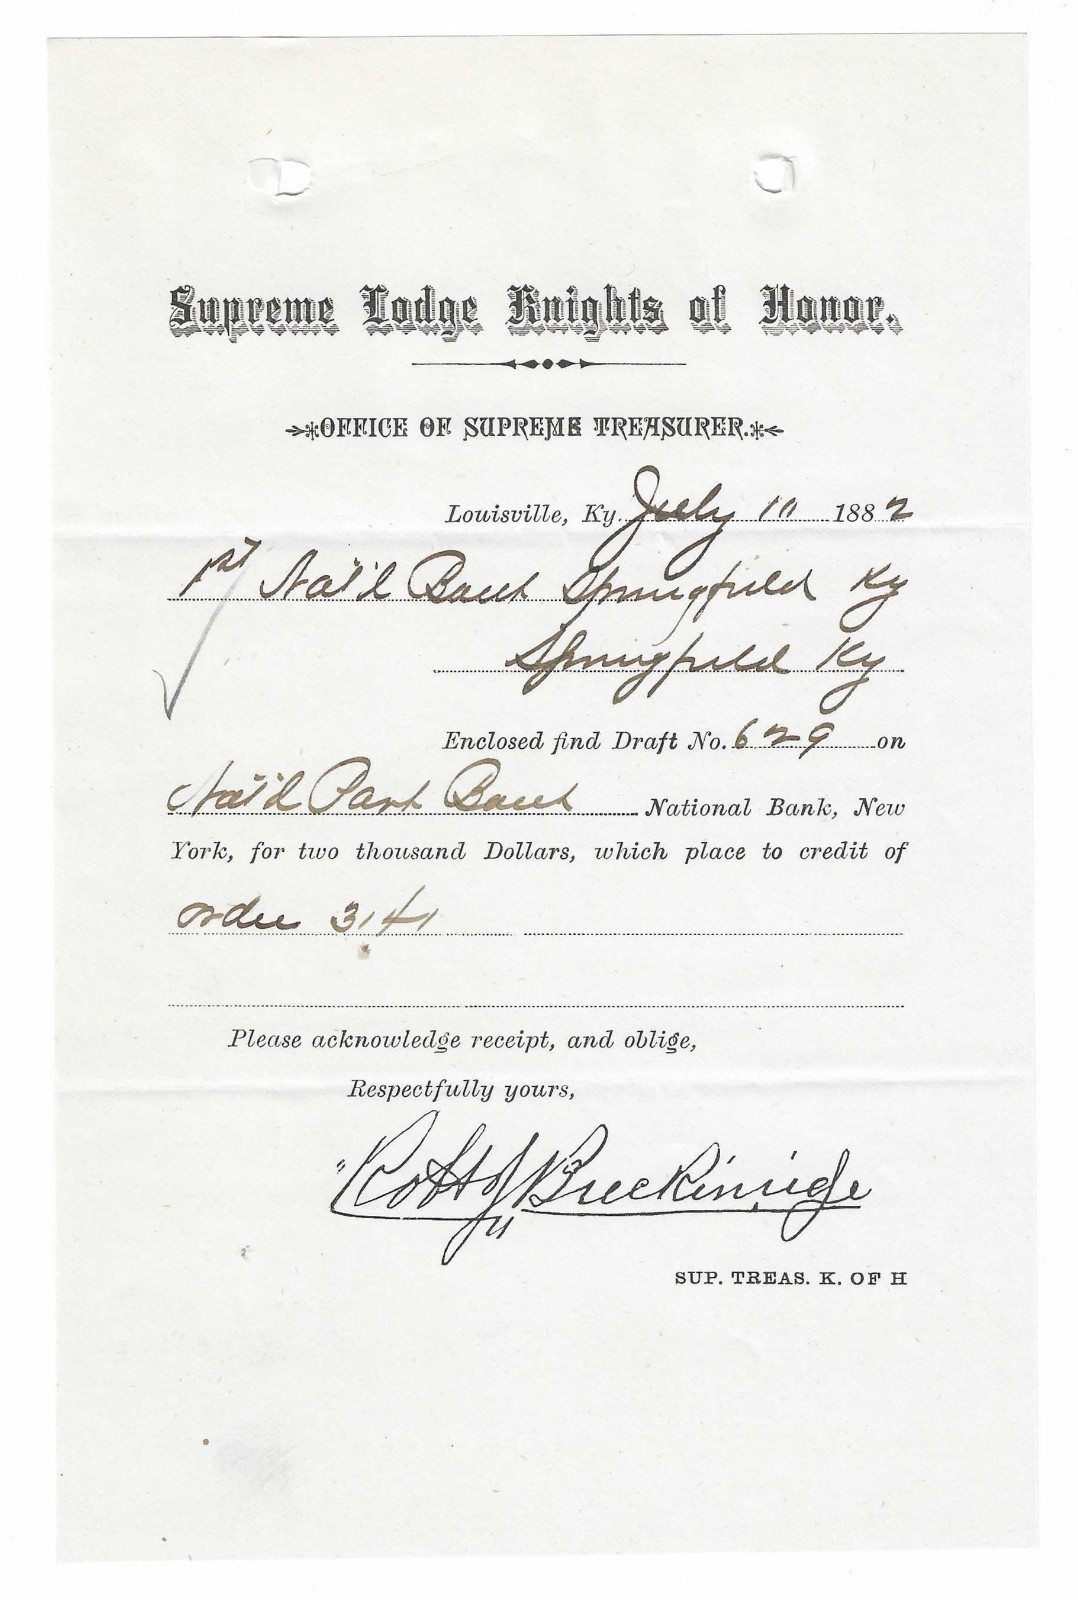 Supreme Lodge Knights of Honor.
OFFICE OF SUPREME TREASURER.
Louisville, Ky. July 10 1882
1st Nat'l Bank Springfield Ky
Springfield Ky
Enclosed find Draft No. 629 on
Nat'l Park Bank National Bank, New
York, for two thousand Dollars, which place to credit of
order 3141
Please acknowledge receipt, and oblige,
Respectfully yours,
"Robt J Breckinridge"
SUP. TREAS. K. OF H